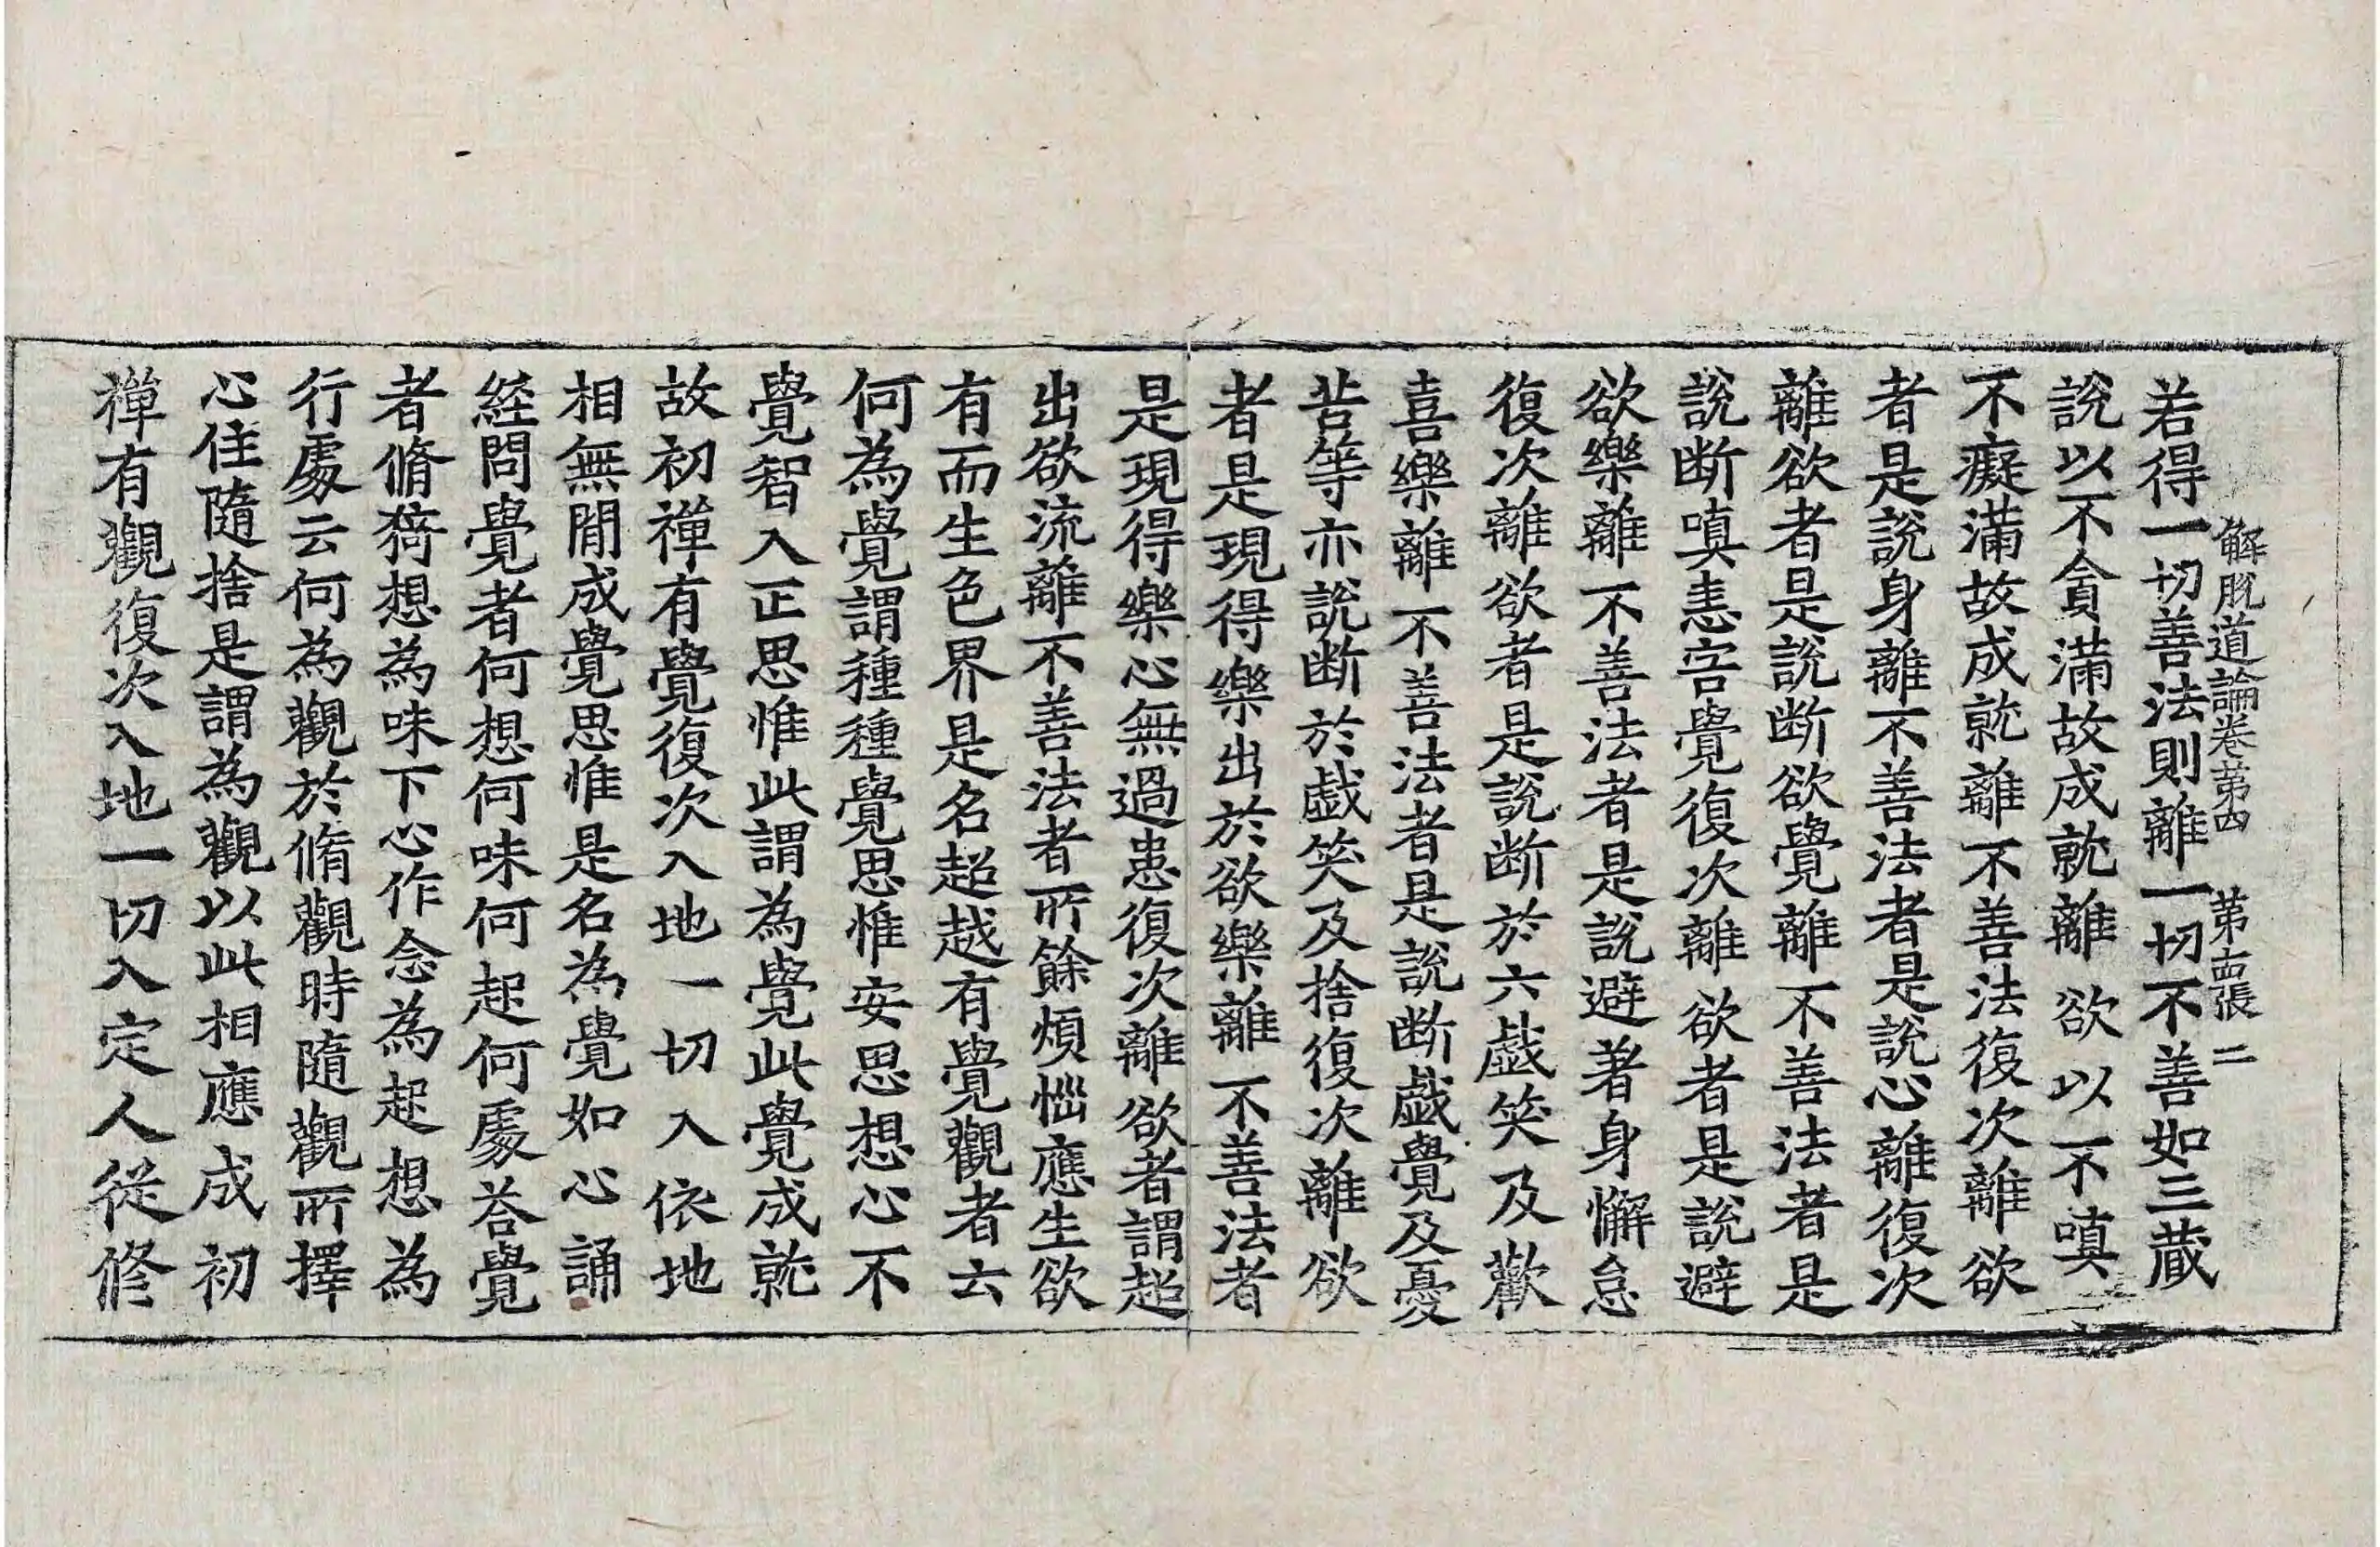 解脫道論卷第四 第十四張 二
若得一切善法則離一切不善如三藏
說以不貪滿故成就離欲以不嗔
不癡滿故成就離不善法復次離欲
者是說身離不善法者是說心離復次
離欲者是說断欲覺離不善法者是
說断嗔恚害覺復次離欲者是說避
欲樂離不善法者是說避著身懈怠
復次離欲者是說断於六戯笑及歡
喜樂離不善法者是說断戯覺及憂
苦等亦說断於戯笑及捨復次離欲
者是現得樂出於欲樂離不善法者
是現得樂心無過患復次離欲者謂超
出欲流離不善法者所餘煩惱應生欲
有而生色界是名超越有覺觀者云
何為覺謂種種覺思惟安思想心不
覺智入正思惟此謂為覺此覺成就
故初禪有覺復次入地一切入依地
相無閒成覺思惟是名為覺如心誦
経問覺者何想何味何起何處荅覺
者脩猗想為味下心作念為起想為
行處云何為觀於脩觀時隨觀所擇
心住隨捨是謂為觀以此相應成初
禪有觀復次入地一切入定人従修